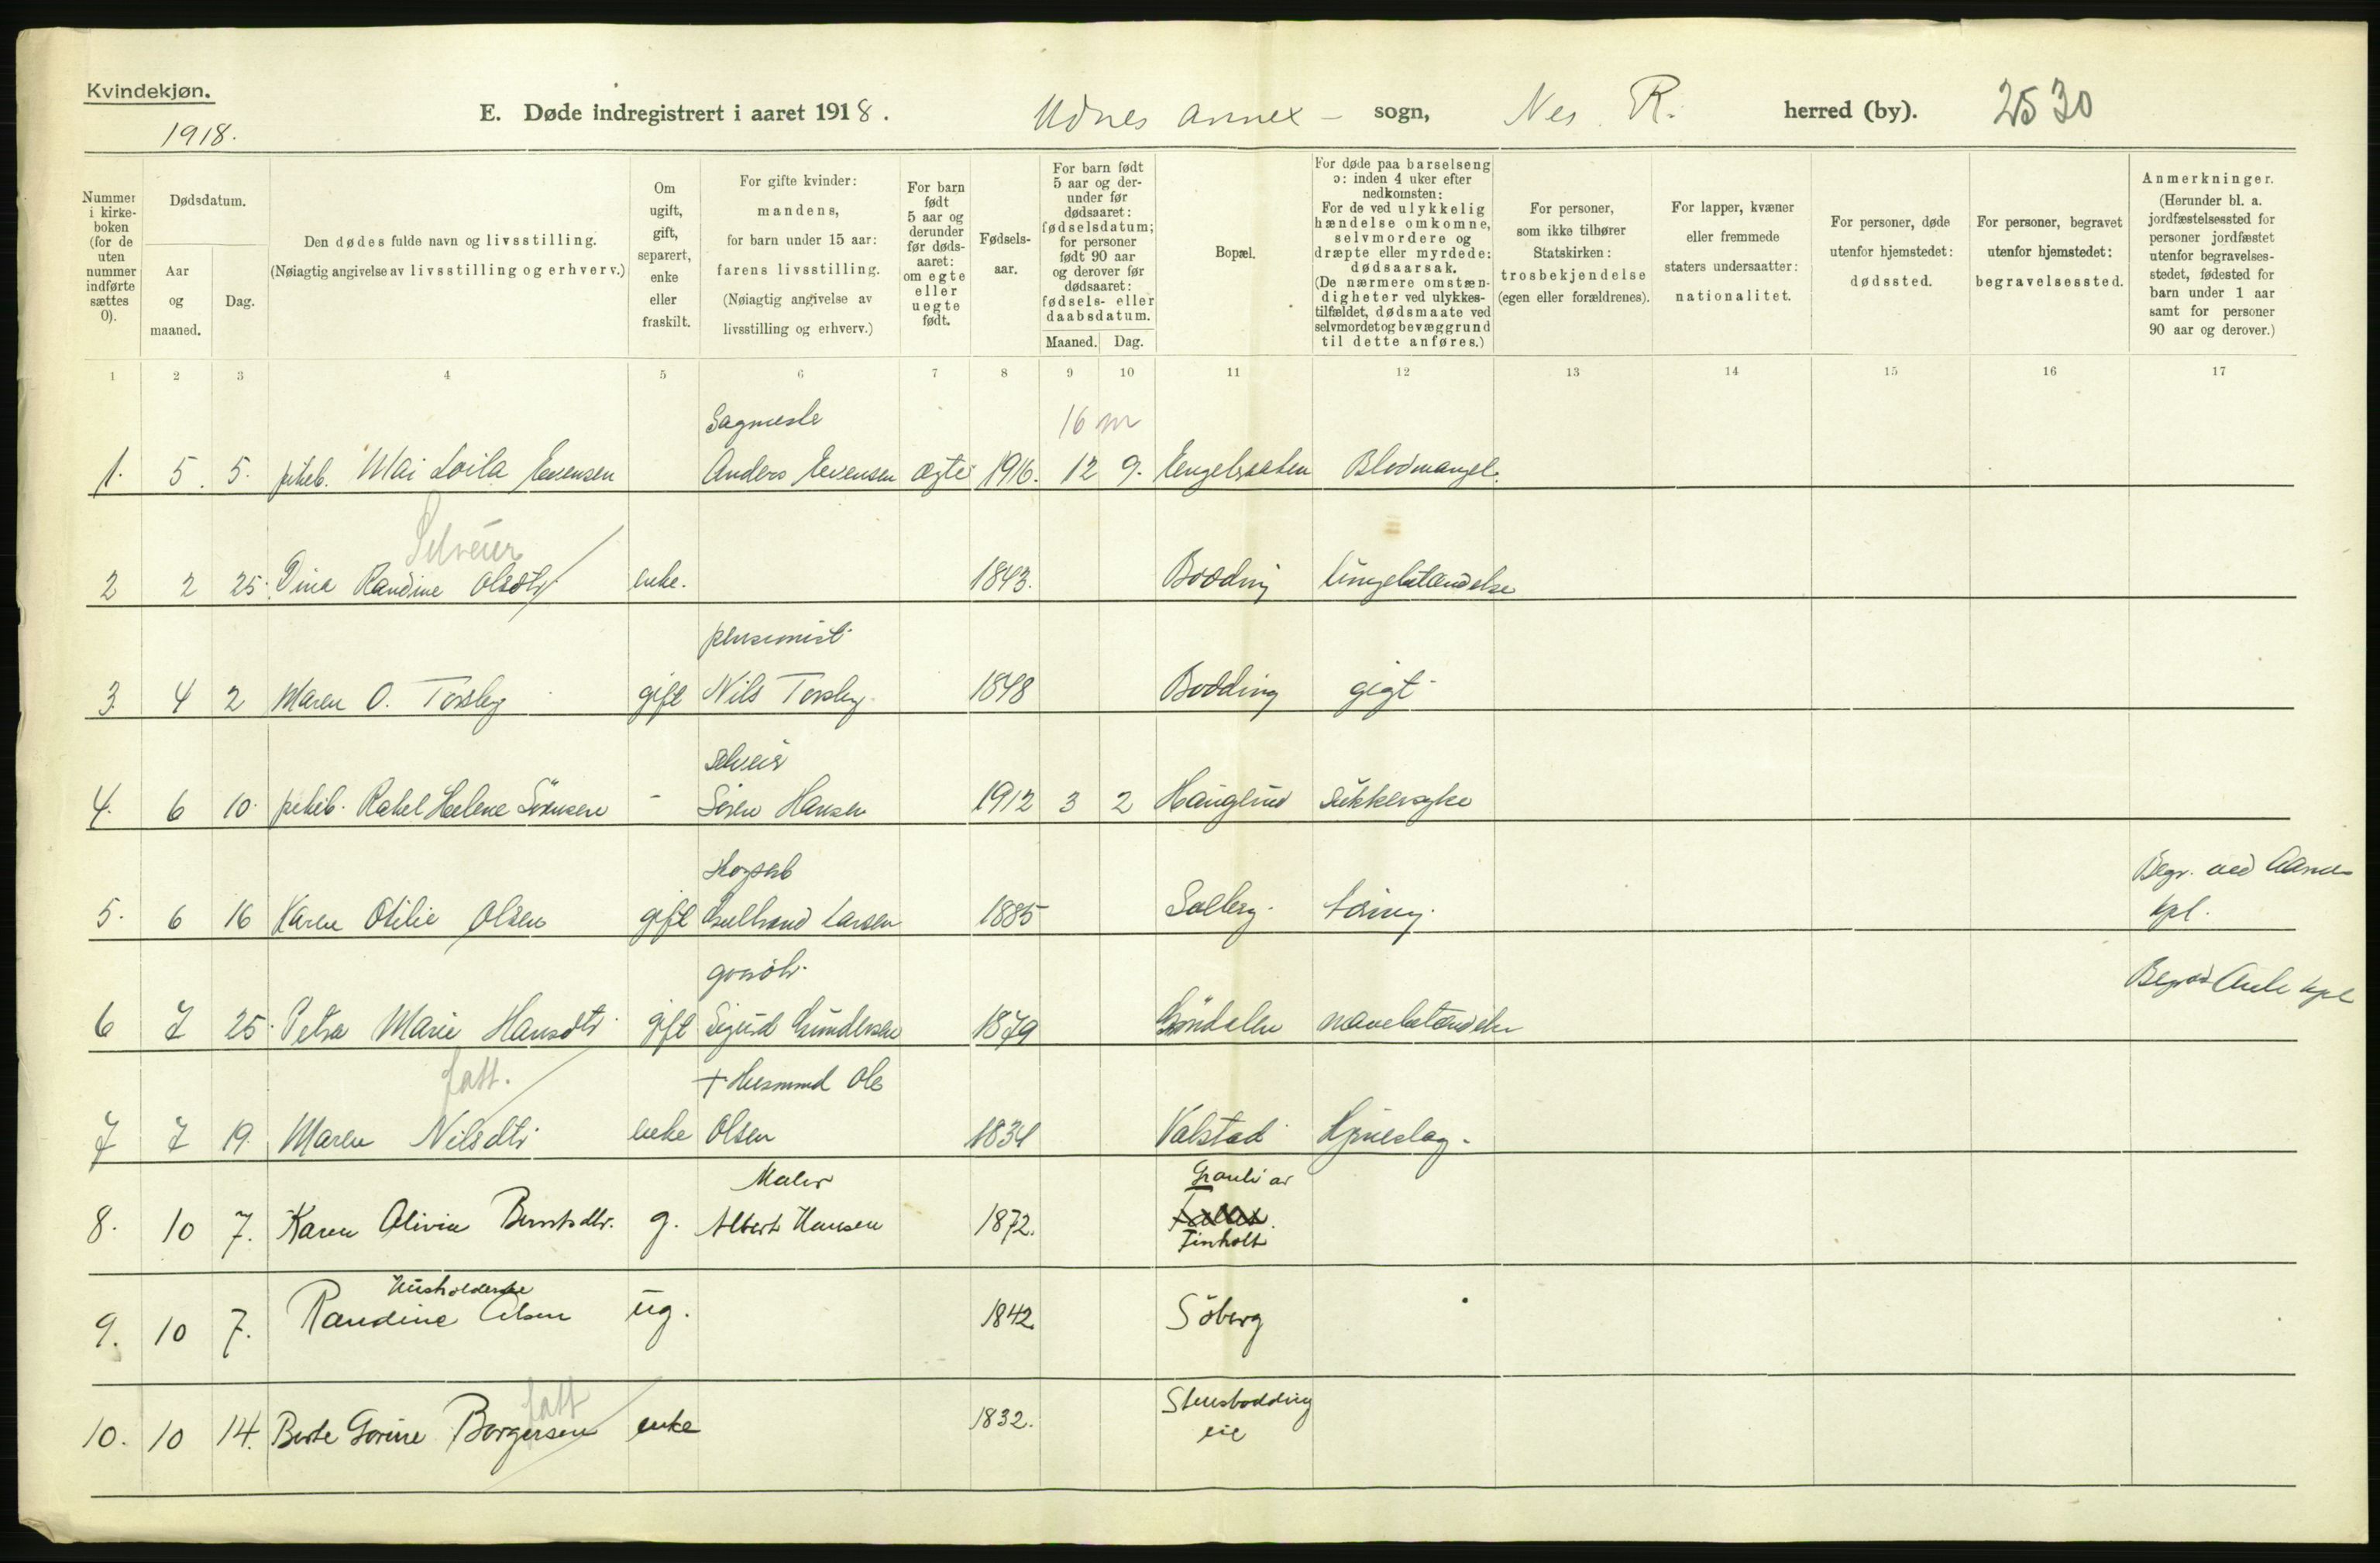 Kvindekjøn.
1918.
E. Døde indregistrert i aaret 1918.
Udnes annex - sogn, Nes R. herred (by).
2530
Nummer i kirke-boken (for de uten nummer indførte sættes 0).
Dødsdatum.
Aar og maaned.
Dag.
Den dødes fulde navn og livsstilling.
(Nøiagtig angivelse av livsstilling og erhverv.)
Om ugift, gift, separert, enke eller fraskilt.
For gifte kvinder: mandens, for barn under 15 aar: farens livsstilling. (Nøiagtig angivelse av livsstilling og erhverv.)
For barn født 5 aar og derunder før døds-aaret: om egte eller uegte født.
Fødsels-aar.
For barn født 5 aar og der-under før dødsaaret: fødselsdatum; for personer født 90 aar og derover før dødsaaret: fødsels- eller daabsdatum.
Maaned. Dag.
Bopæl.
For døde paa barselseng ɔ: inden 4 uker efter nedkomsten: For de ved ulykkelig hændelse omkomne, selvmordere og dræpte eller myrdede: dødsaarsak. (De nærmere omstæn-digheter ved ulykkes-tilfældet, dødsmaate ved selvmordet og bevæggrund til dette anføres.)
For personer, som ikke tilhører Statskirken: trosbekjendelse (egen eller forældrenes).
For lapper, kvæner eller fremmede staters undersaatter: nationalitet.
For personer, døde utenfor hjemstedet: dødssted.
For personer, begravet utenfor hjemstedet: begravelsessted.
Anmerkninger. (Herunder bl. a. jordfæstelsessted for personer jordfæstet utenfor begravelses-stedet, fødested for barn under 1 aar samt for personer 90 aar og derover.)
1 2 3 4 5 6 7 8 9 10 11 12 13 14 15 16 17
Sagmeste 16 m
1. 5. 5. pikeb. Mai Loila Evensen Anders Evensen ægte 1916. 12 9. Engelsaaten Blodmangel.
Selveier
2 2 25. Dina Randine Olsdtr enke. 1843. Bodding lungebetændelse
pensionist
3 4 2 Maren O. Torsby gift Nils Torsby 1848 Bodding gigt
selveier
4. 6 10. pikeb. Rakel Helene Sörensen - Sören Hansen 1912 3 2 Hauglund sukkersyke
Skogsarb Begr. ved
5. 6 16 Karen Otilie Olsen gift Gulbrand Larsen 1885 Solberg. tæring. kpl.
kpl
6 7 25. Petra Marie Hansdtr gift Sigurd Gundersen 1879 Gröndalen
fatt. + Husmand Ole
7 7 19. Maren Nilsdtr enke Olsen 1834 Valstad Hjerteslag.
Maler
8. 10 7. Karen Olivia Berntsdtr. g. Albert Hansen 1872. Finholt
Husholderske
9. 10 7. Randine Olsen ug. 1842. Söberg
fatt Stensbodding
10. 10 14. Berte Gorine Borgersen enke 1832. eie